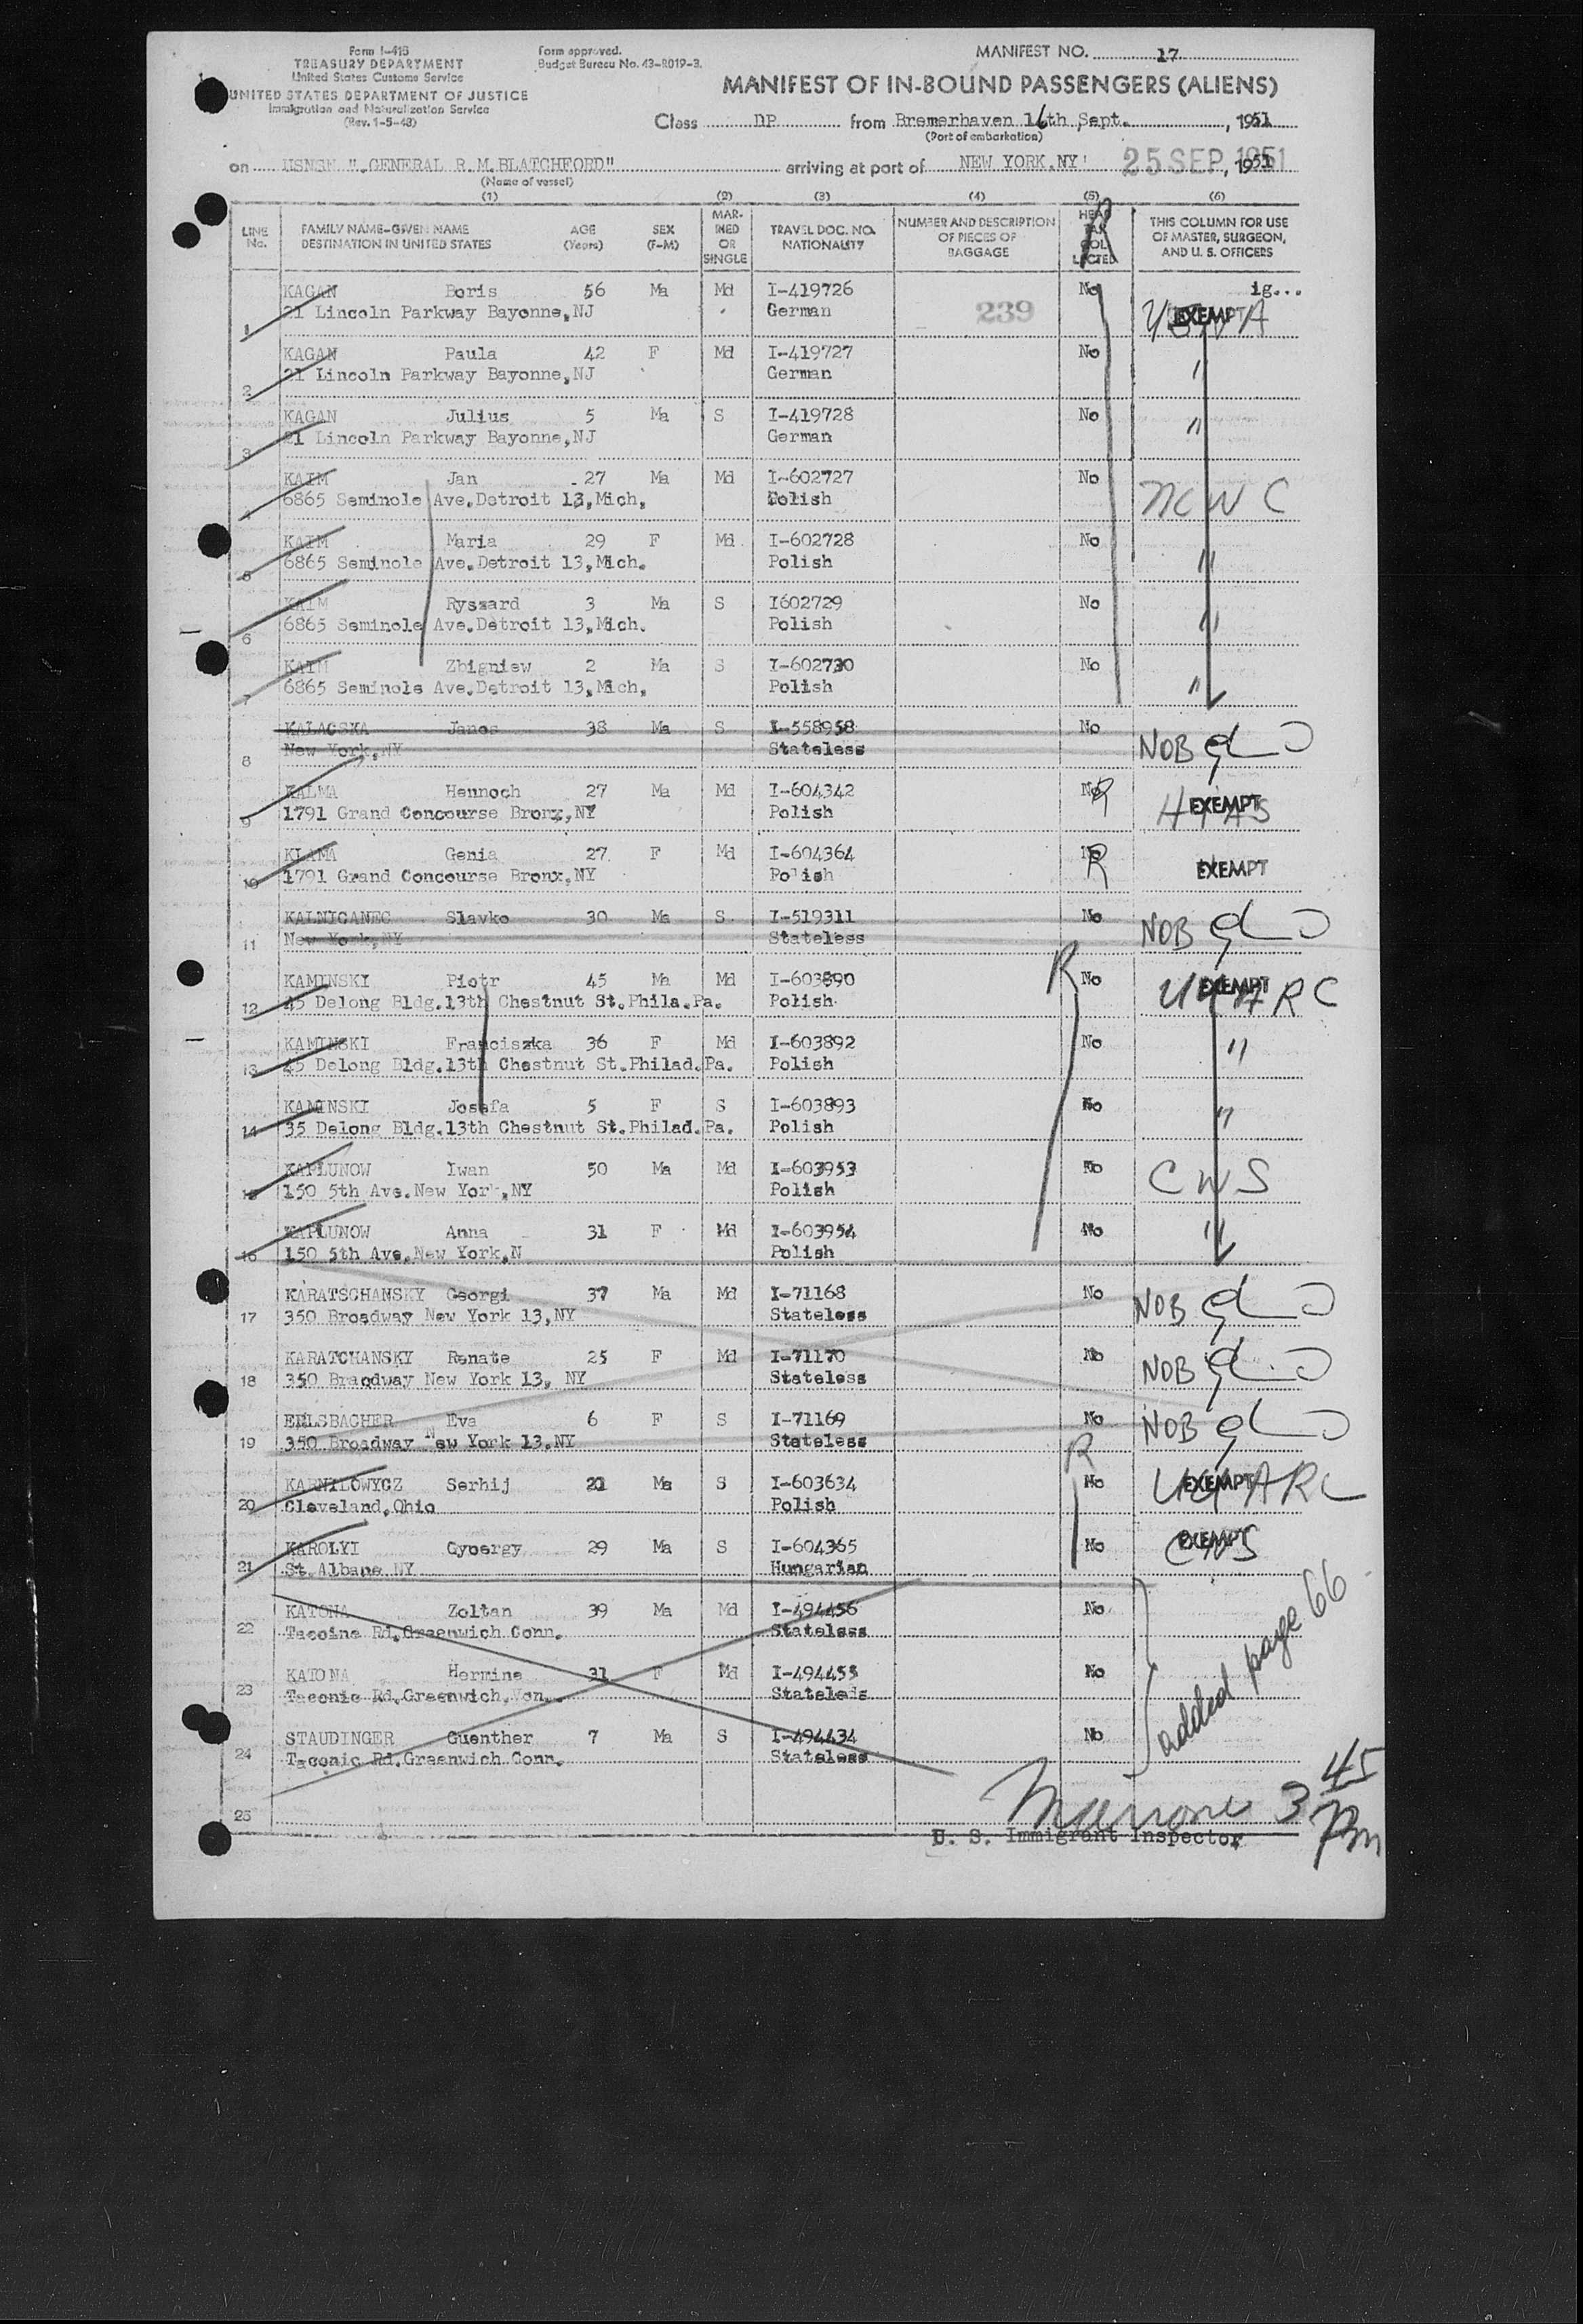 Form I-418
TREASURY DEPARTMENT
United States Customs Service
UNITED STATES DEPARTMENT OF JUSTICE
Immigration and Naturalization Service
(Rev. 1-5-48)
Form approved.
Budget Bureau No. 43-R019-3.
MANIFEST NO. 17
MANIFEST OF IN-BOUND PASSENGERS (ALIENS)
Class DP from Bremerhaven 16th Sept. , 1951
(Port of embarkation)
on USNSH ". GENERAL R.M.BLATCHFORD" arriving at port of NEW YORK.NY 25 SEP 1951 , 1951
(Name of vessel)
(1) (2) (3) (4) (5) (6)
LINE No. FAMILY NAME-GIVEN NAME DESTINATION IN UNITED STATES AGE (Years) SEX (F-M) MARRIED OR SINGLE TRAVEL DOC. NO. NATIONALITY NUMBER AND DESCRIPTION OF PIECES OF BAGGAGE HEAD TAX COLLECTED THIS COLUMN FOR USE OF MASTER, SURGEON, AND U. S. OFFICERS
R
KAGAN Boris 56 Ma Md I-419726 No ig...
1 21 Lincoln Parkway Bayonne,NJ German 239 EXEMPT
KAGAN Paula 42 F Md I-419727 No
2 21 Lincoln Parkway Bayonne,NJ German "
KAGAN Julius 5 Ma S I-419728 No
3 21 Lincoln Parkway Bayonne,NJ German "
KAIM Jan 27 Ma Md I-602727 No
4 6865 Seminole Ave.Detroit 13,Mich, Polish NCWC
KAIM Maria 29 F Md I-602728 No
5 6865 Seminole Ave.Detroit 13,Mich. Polish "
KAIM Ryszard 3 Ma S I602729 No
6 6865 Seminole Ave.Detroit 13,Mich. Polish "
KAIM Zbigniew 2 Ma S I-602730 No
7 6865 Seminole Ave.Detroit 13,Mich, Polish "
KALACSKA Janos 38 Ma S I-558958 No
8 New York,NY Stateless NOB
KALMA Hennoch 27 Ma Md I-604342 No R
9 1791 Grand Concourse Bronx,NY Polish HIAS EXEMPT
KLAMA Genia 27 F Md I-604364 No R
10 1791 Grand Concourse Bronx,NY Polish EXEMPT
KALNICANEC Slavko 30 Ma S I-519311 No
11 New York,NY Stateless NOB
KAMINSKI Piotr 45 Ma Md I-603890 R No EXEMPT
12 45 Delong Bldg.13th Chestnut St.Phila.Pa. Polish UUARC
KAMINSKI Franciszka 36 F Md I-603892 No
13 45 Delong Bldg.13th Chestnut St.Philad.Pa. Polish "
KAMINSKI Josefa 5 F S I-603893 No
14 35 Delong Bldg.13th Chestnut St.Philad.Pa. Polish "
KAPLUNOW Iwan 50 Ma Md I-603953 No
15 150 5th Ave.New York,NY Polish CWS
KAPLUNOW Anna 31 F Md I-603954 No
16 150 5th Ave.New York,N Polish "
KARATSCHANSKY Georgi 37 Ma Md I-71168 No
17 350 Broadway New York 13,NY Stateless NOB
KARATCHANSKY Renate 25 F Md I-71170 No
18 350 Braodway New York 13, NY Stateless NOB
EHLSBACHER Eva 6 F S I-71169 No
19 350 Broadway New York 13.NY Stateless NOB
R
KARNILOWYCZ Serhij 21 Ma S I-603634 No EXEMPT
20 Cleveland,Ohio Polish UUARC
KAROLYI Gyoergy 29 Ma S I-604365 No EXEMPT
21 St.Albans NY Hungarian CWS
KATONA Zoltan 39 Ma Md I-494456 No
22 Tacoine Rd.Greenwich Conn. Stateless
KATONA Hermine 31 F Md I-494455 No
23 Taconic Rd.Greenwich,Von. Stateless
STAUDINGER Guenther 7 Ma S I-494434 No
24 Taconic Rd.Greenwich Conn. Stateless
added page 66
25
Marrone 3 45 Pm
U. S. Immigrant Inspector